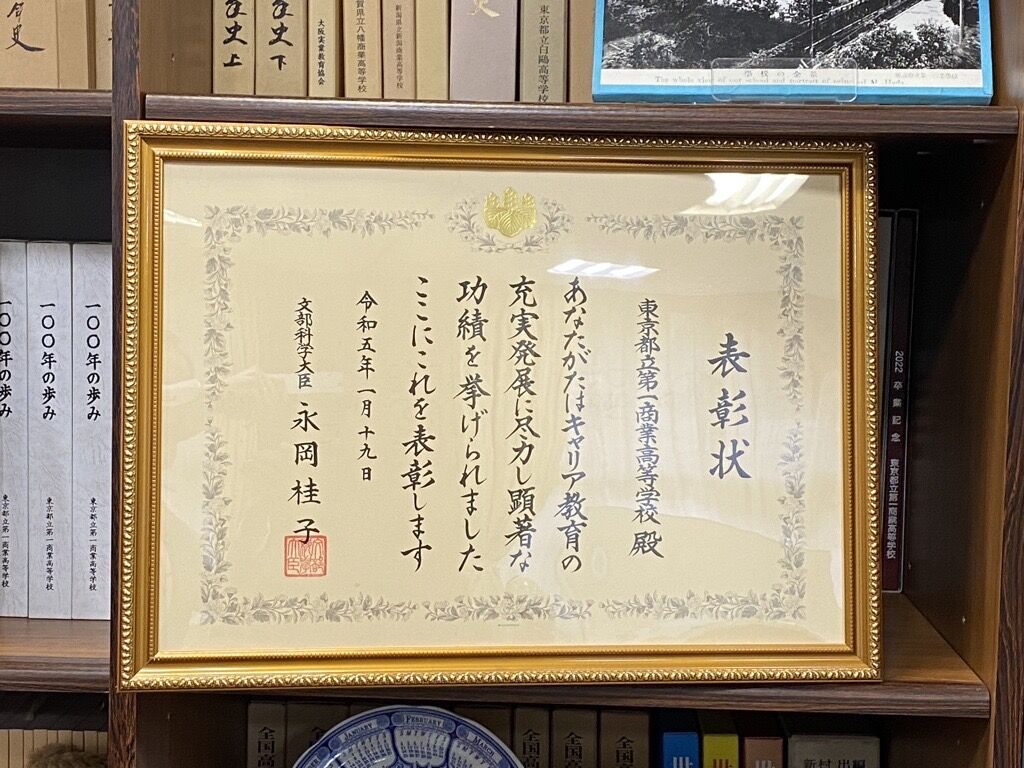 史
史 上
史 下
大阪実業教育協会
賀県立八幡商業高等学校
新潟県立新潟商業高等学校
史
東京都立白鷗高等学校
景全の校學
The whole view of our school and portrait of principal M. Hada
表彰状
東京都立第一商業高等学校 殿
あなたがたはキャリア教育の
充実発展に尽力し顕著な
功績を挙げられました
ここにこれを表彰します
令和五年一月十九日
文部科学大臣 永岡桂子
一〇〇年の歩み
東京都立第一商業高等学校
一〇〇年の歩み
東京都立第一商業高等学校
一〇〇年の歩み
東京都立第一商業高等学校
2022 卒業記念 東京都立第一商業高等学校
全国高
全国高
全国高
全国高
FEBRUARY
MARCH
新村 出編